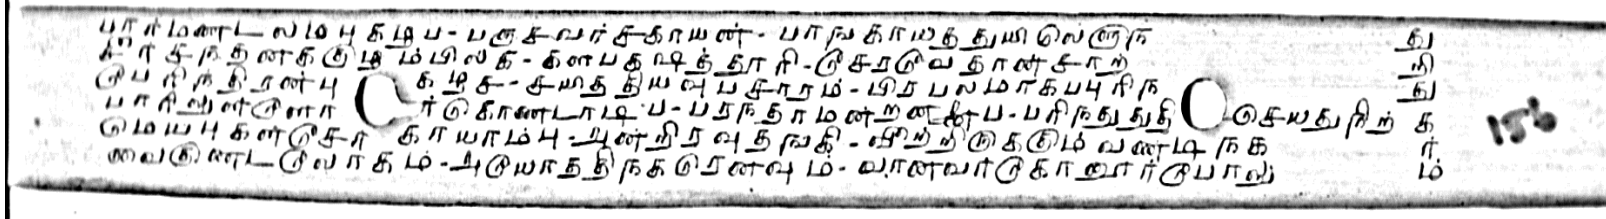 பார்மண்டலம்புகழப - பருசவர்ச்காயன் - பாஙகாயத்துயிலெளுந து
சநதனக்குழம்பிலக - களபகஷத்தூரி - சேரவேதான்சாற றி
பேரிநதிரண்பு கழச - சயித்தியவுபசாரம் - பிரபலமாகபபுரிந து
பாரிலுள்ளோ ர்கொண்டாடிப - பரநதாமன்றனைப - பரிநதுதுதி செயதுநிற் க
மெயபுகள்சேர காயாம்பு - பூண்றிரவுதஙகி - வீற்றிருக்கும் வண்டிநக ர்
வைகுண்டலோகம் - அயோத்திநகரெனவும் - வானவர்கோனார்போலு ம்
156